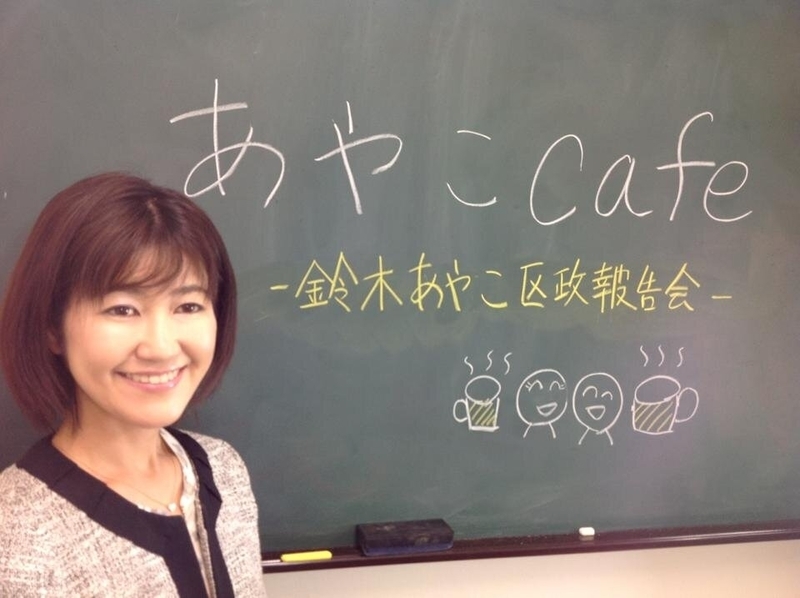 あやこcafe
-鈴木あやこ区政報告会-